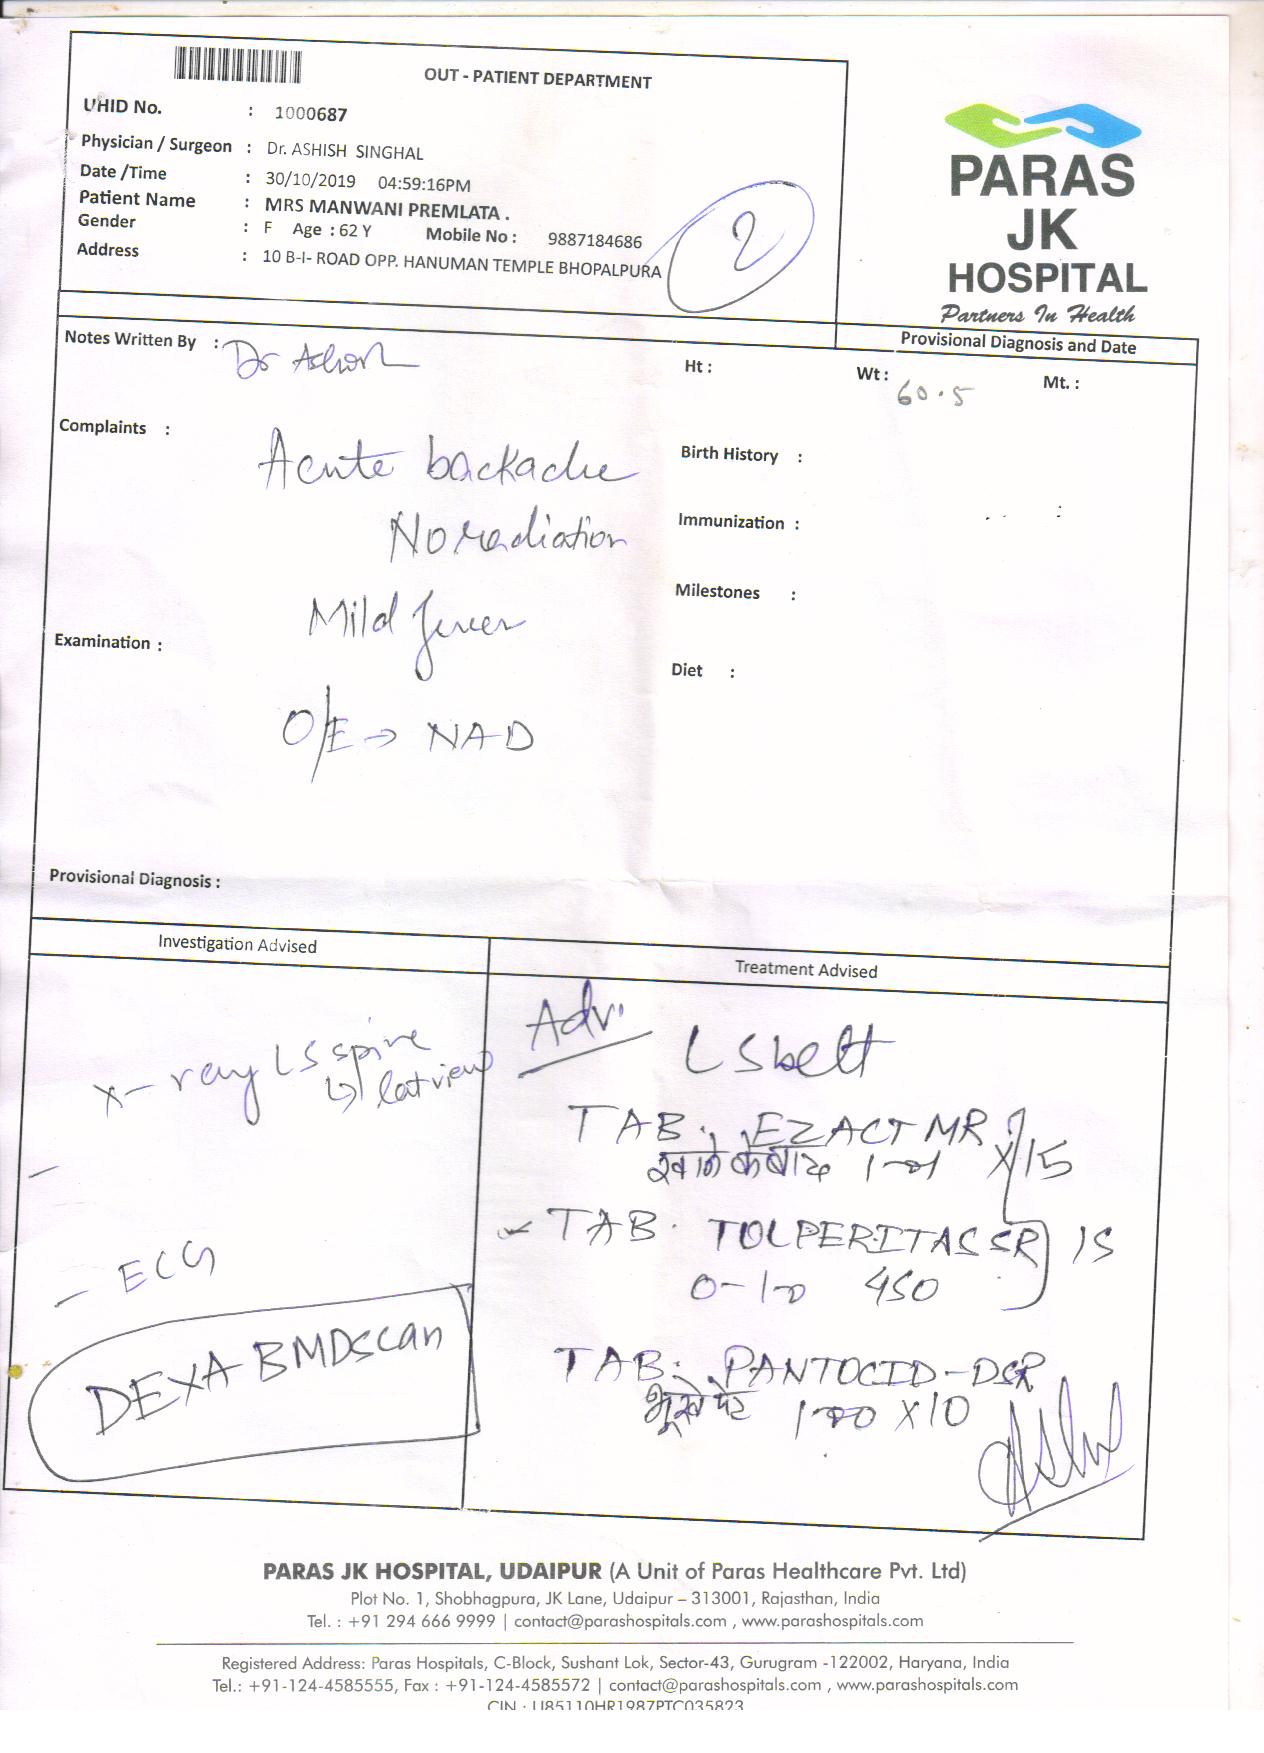 OUT - PATIENT DEPARTMENT
UHID No. : 1000687
Physician / Surgeon : Dr. ASHISH SINGHAL
Date /Time : 30/10/2019 04:59:16PM
Patient Name : MRS MANWANI PREMLATA .
Gender : F Age : 62 Y Mobile No : 9887184686
Address : 10 B-I- ROAD OPP. HANUMAN TEMPLE BHOPALPURA
2
PARAS
JK
HOSPITAL
Partners In Health
Notes Written By : Dr Ashish
Provisional Diagnosis and Date
Ht : Wt : 60.5 Mt. :
Complaints :
Acute backache
No radiation
Mild fever
Birth History :
Immunization :
Milestones :
Diet :
Examination :
O/E → NAD
Provisional Diagnosis :
Investigation Advised
X-ray LS spine
↳ lat view
- ECG
DEXA BMD scan
Treatment Advised
Adv.
LS belt
TAB. EZACT MR
खाने के बाद 1-0-1 X 15
TAB. TOLPERITAS SR 15
0-1-0 450
TAB. PANTOCID-DSR
भूखे पेट 1-0-0 X 10
PARAS JK HOSPITAL, UDAIPUR (A Unit of Paras Healthcare Pvt. Ltd)
Plot No. 1, Shobhagpura, JK Lane, Udaipur – 313001, Rajasthan, India
Tel. : +91 294 666 9999 | contact@parashospitals.com , www.parashospitals.com
Registered Address: Paras Hospitals, C-Block, Sushant Lok, Sector-43, Gurugram -122002, Haryana, India
Tel.: +91-124-4585555, Fax : +91-124-4585572 | contact@parashospitals.com , www.parashospitals.com
CIN : U85110HR1987PTC035823